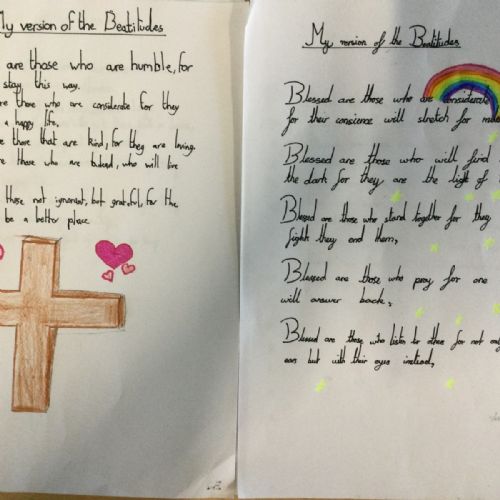 My version of the Beatitudes
are those who are humble, for
stay this way.
are those who are considerate for they
a happy life.
are those that are kind, for they are loving.
are those who are , who will live
those not ignorant, but grateful, for the
be a better place
My version of the Beatitudes
Blessed are those who are considerate
for their conscience will stretch for
Blessed are those who will find
the dark for they are the light of
Blessed are those who stand together for they
fights they end them,
Blessed are those who pray for one
will answer back,
Blessed are those who listen to others for not only
ears but with their eyes instead,